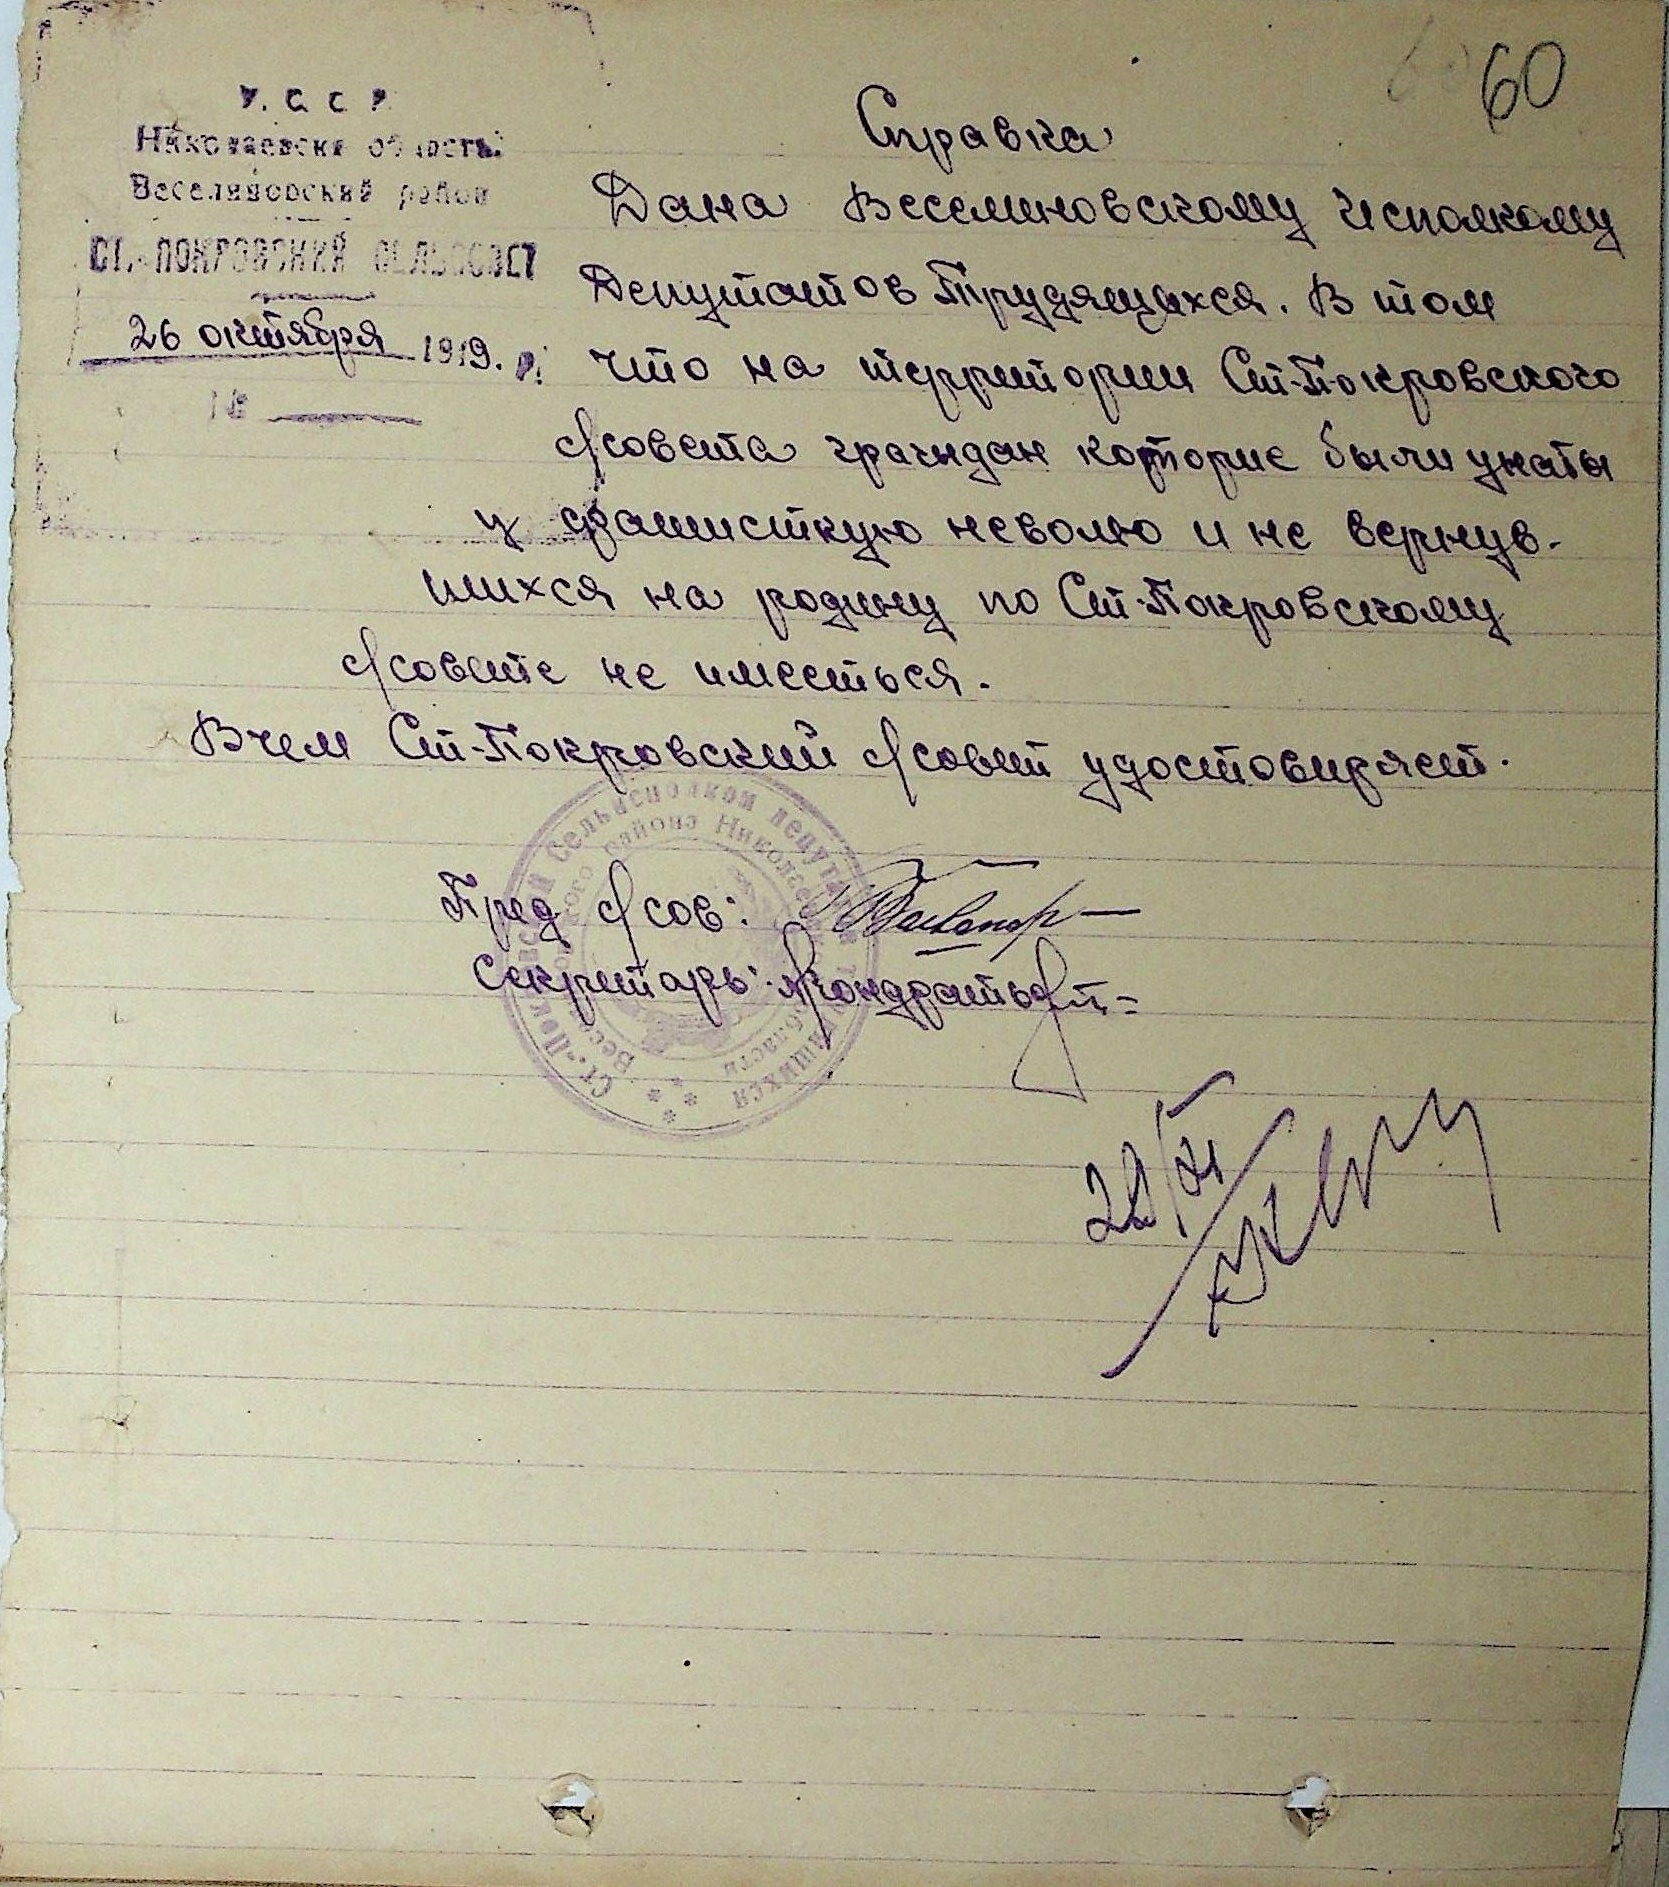 60
У. С. С. Р.
Николаевска область
Веселиновский район
СТ.-ПОКРОВСКИЙ СЕЛЬСОВЕТ
26 октября 1919. г.
Справка
Дана Веселиновскому исполкому
Депутатов Трудящихся. В том
что на территории Ст-Покровского
с/совета граждан которие были унаты
у фашисткую неволю и не вернув-
шихся на родину по Ст-Покровскому
с/совете не имееться.
Вчем Ст-Покровский с/совет удостовиряет.
Пред с/сов:
Секретарь: Кондратьев
Ст.-Покровский Сельисполком депутатов трудящихся
Веселиновского района Николаевской области